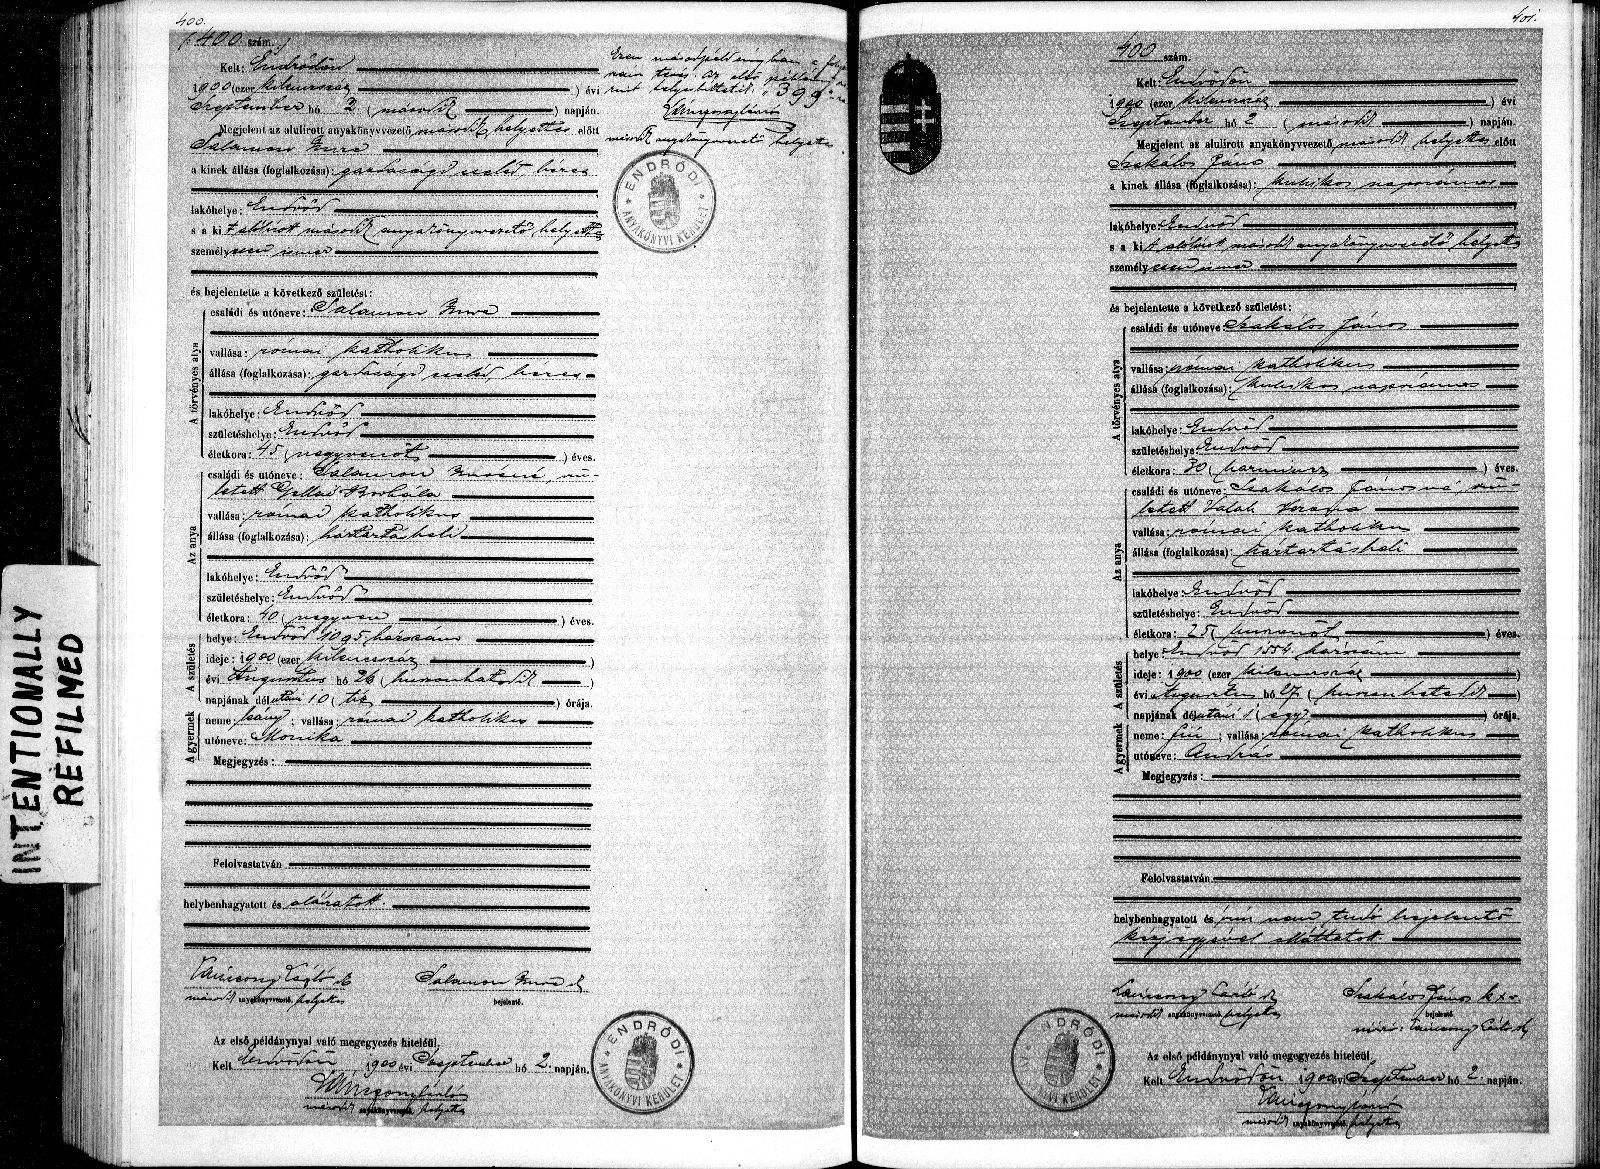 400.
400 szám.
Kelt: Endrődön
1900 (ezer kilenczszáz) évi
Szeptember hó 2 (második) napján.
Megjelent az alulirott anyakönyvvezető, második helyettes előtt
Salamon Imre
a kinek állása (foglalkozása): gazdasági cseléd béres
lakóhelye: Endrőd
s a ki t alólirott második anyakönyvvezető helyettes
személyesen ismer
és bejelentette a következő születést:
A törvényes atya
családi és utóneve: Salamon Imre
vallása: római katholikus
állása (foglalkozása): gazdasági cseléd, béres
lakóhelye: Endrőd
születéshelye: Endrőd
életkora: 45 (negyvenöt) éves.
Az anya
családi és utóneve: Salamon Imréné, szü-
letett Gellai Borbála
vallása: római katholikus
állása (foglalkozása): háztartásbeli
lakóhelye: Endrőd
születéshelye: Endrőd
életkora: 40 (negyven) éves.
A születés
helye: Endrőd 1095 házszám
ideje: 1900 (ezer kilenczszáz)
évi Augusztus hó 26 (huszonhatodik)
napjának délutáni 10 (tíz) órája.
A gyermek
neme: leány; vallása: római katholikus
utóneve: Monika
Megjegyzés:
Felolvastatván
helybenhagyatott és aláíratott.
második anyakönyvvezető helyettes
Salamon Imre
bejelentő.
Az első példánynyal való megegyezés hiteléül.
Kelt Endrődön 1900 évi Szeptember hó 2. napján.
második anyakönyvvezető helyettes
Ezen másodpéldányban a folyó
szám téves az első példány
helyesbittetik 399
második anyakönyvvezető helyettes
ENDRŐDI
ANYAKÖNYVI KERÜLET
ENDRŐDI
ANYAKÖNYVI KERÜLET
INTENTIONALLY
REFILMED
401.
400 szám.
Kelt: Endrődön
1900 (ezer kilenczszáz) évi
Szeptember hó 2 (második) napján.
Megjelent az alulirott anyakönyvvezető, második helyettes előtt
Szakálos János
a kinek állása (foglalkozása): kubikos napszámos
lakóhelye: Endrőd
s a ki t alólirott második anyakönyvvezető helyettes
személyesen ismer
és bejelentette a következő születést:
A törvényes atya
családi és utóneve: Szakálos János
vallása: római katholikus
állása (foglalkozása): kubikos napszámos
lakóhelye: Endrőd
születéshelye: Endrőd
életkora: 30 (harmincz) éves.
Az anya
családi és utóneve: Szakálos Jánosné, szü-
letett Valah Verona
vallása: római katholikus
állása (foglalkozása): háztartásbeli
lakóhelye: Endrőd
születéshelye: Endrőd
életkora: 25 (huszonöt) éves.
A születés
helye: Endrőd 1554. házszám
ideje: 1900 (ezer kilenczszáz)
évi Augusztus hó 27. (huszonhetedik)
napjának délutáni 1 (egy) órája.
A gyermek
neme: fiú; vallása: római katholikus
utóneve: András
Megjegyzés:
Felolvastatván
helybenhagyatott és írni nem tudó bejelentő
kézjegyével elláttatott.
második anyakönyvvezető helyettes
Szakálos János kx.
bejelentő.
Az első példánynyal való megegyezés hiteléül.
Kelt Endrődön 1900 évi Szeptember hó 2. napján.
második anyakönyvvezető helyettes
ENDRŐDI
VI KERÜLET